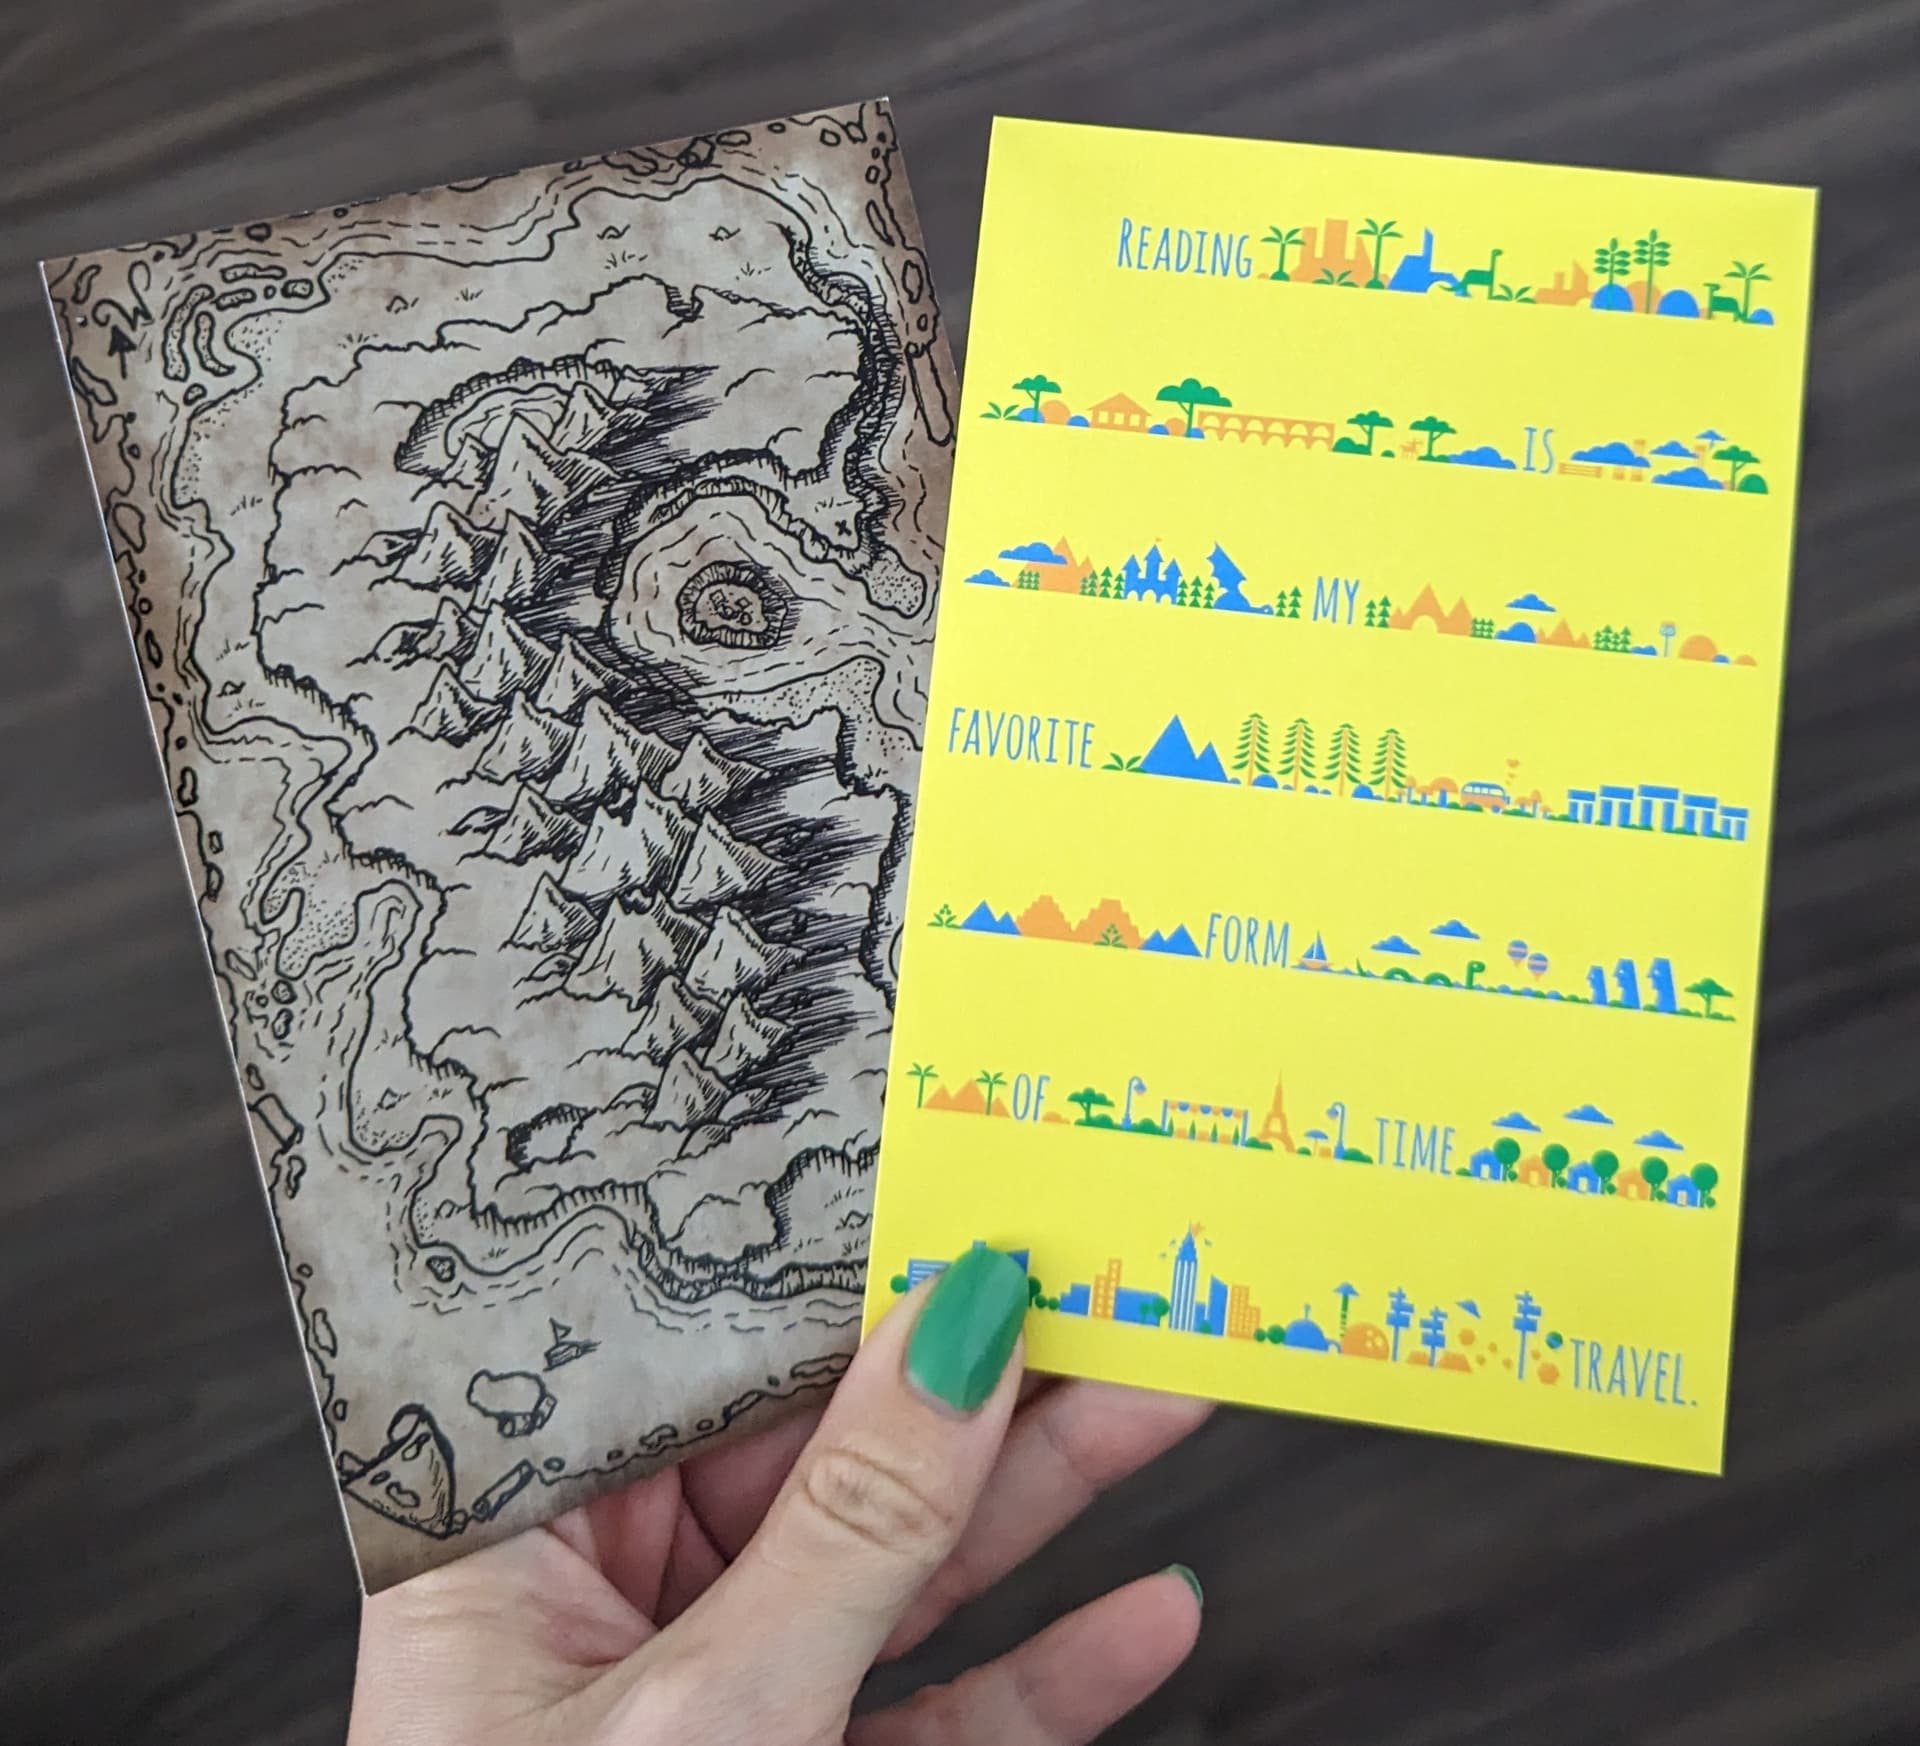 W
READING
IS
MY
FAVORITE
FORM
OF TIME
TRAVEL.